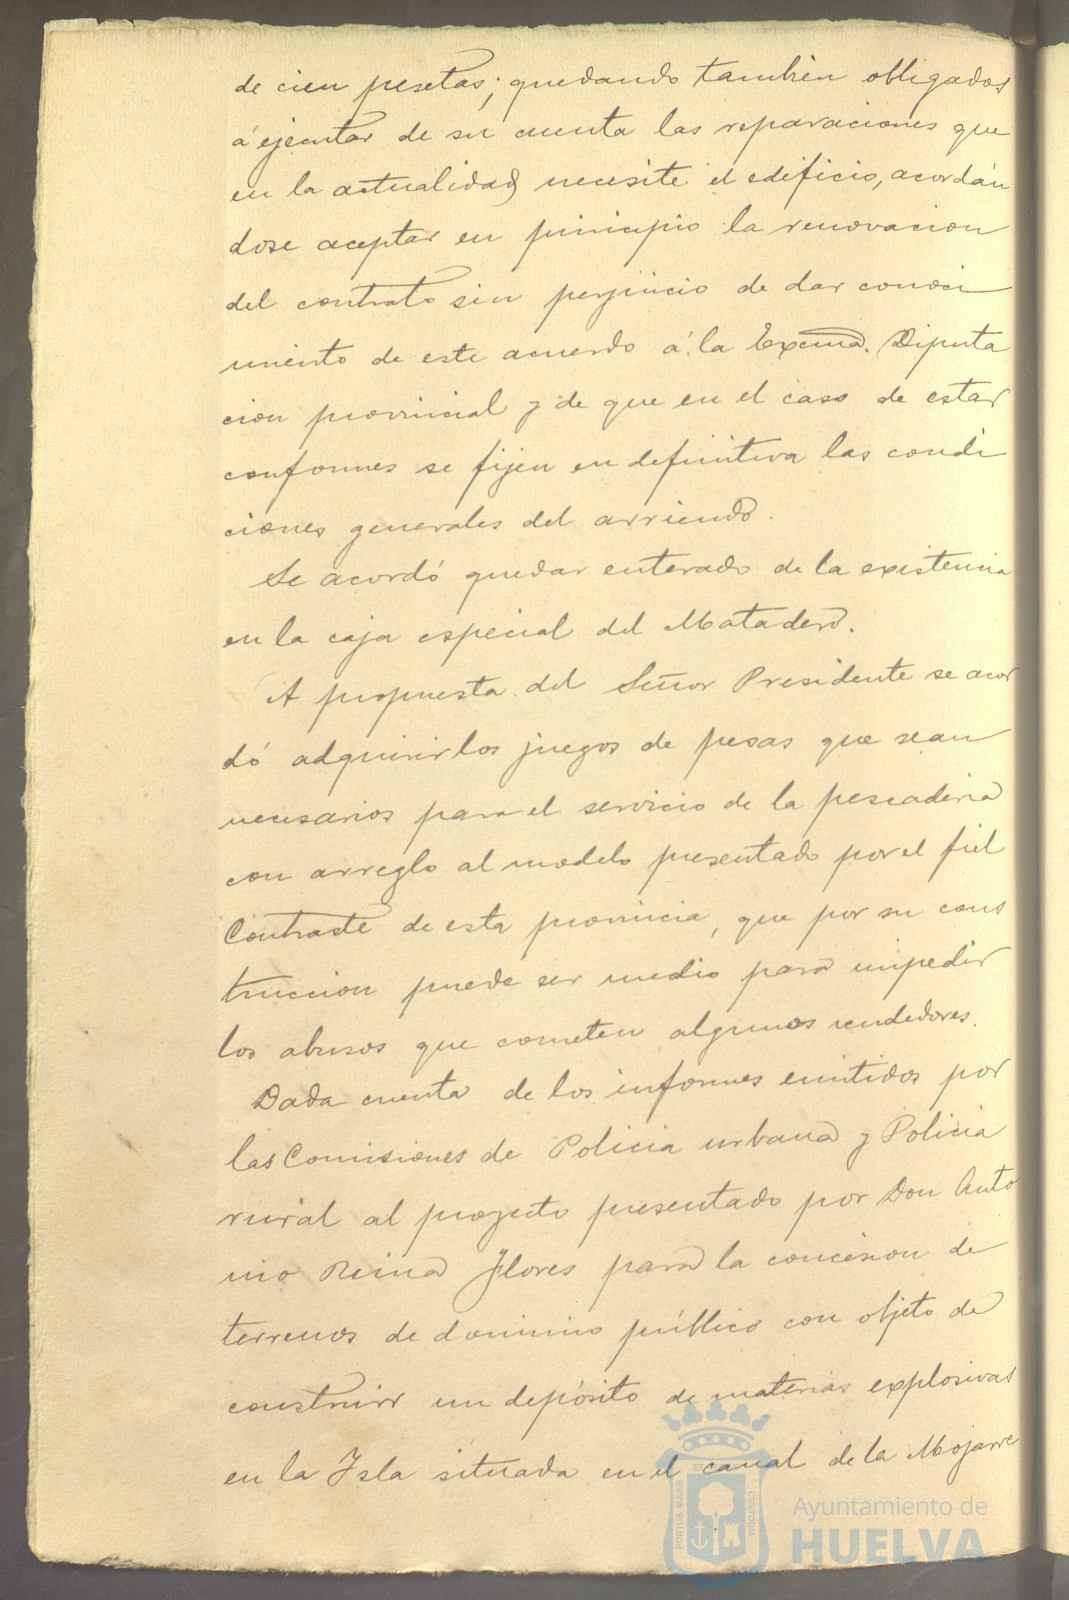 de cien pesetas; quedando tambien obligados
á ejecutar de su cuenta las reparaciones que
en la actualidad necesite el edificio, acordán
dose aceptar en principio la renovacion
del contrato sin perjuicio de dar conoci
miento de este acuerdo á la Excma. Diputa
cion provincial y de que en el caso de estar
conformes se fijen en definitiva las condi
ciones generales del arriendo.
Se acordó quedar enterado de la existencia
en la caja especial del Matadero.
A propuesta del Señor Presidente se acor
dó adquirir los juegos de pesas que sean
necesarios para el servicio de la pescaderia
con arreglo al modelo presentado por el fiel
Contraste de esta provincia, que por su cons
truccion puede ser medio para impedir
los abusos que cometen algunos vendedores.
Dada cuenta de los informes emitidos por
las Comisiones de Policia urbana y Policia
rural al proyecto presentado por Don Anto
nio Reina Flores para la concesion de
terrenos de dominio público con objeto de
construir un depósito de materias explosivas
en la Isla situada en el canal de la Mojarre
PORTUS MARIS
CUSTODIA
Ayuntamiento de
HUELVA